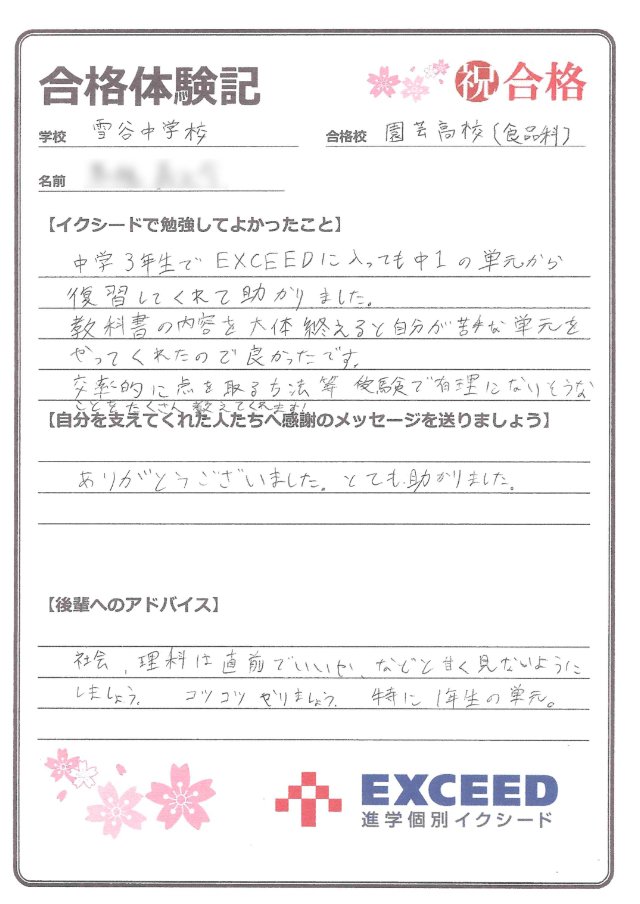 合格体験記
祝 合格
学校 雪谷中学校
合格校 園芸高校(食品科)
名前
【イクシードで勉強してよかったこと】
中学3年生でEXCEEDに入っても中1の単元から
復習してくれて助かりました。
教科書の内容を大体終えると自分が苦手な単元を
やってくれたので良かったです。
交率的に点を取る方法等 受験で有理になりそうな
ことをたくさん教えてくれます!
【自分を支えてくれた人たちへ感謝のメッセージを送りましょう】
ありがとうございました。とても助かりました。
【後輩へのアドバイス】
社会、理科は直前でいいや、などと甘く見ないように
しましょう。 コツコツやりましょう。 特に1年生の単元。
EXCEED
進学個別イクシード